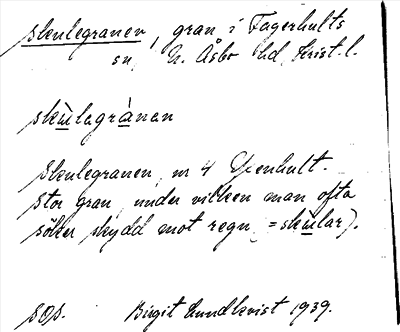 skulegranen, gran i Fagerhults
sn, N. Åsbo hd, Krist. l.
skùlagrànan
Skulegranen, nr 4 Esenhult.
stor gran, under vilken man ofta
söker skydd mot regn (=skùlar).
SOS. Birgit Lundkvist 1939.